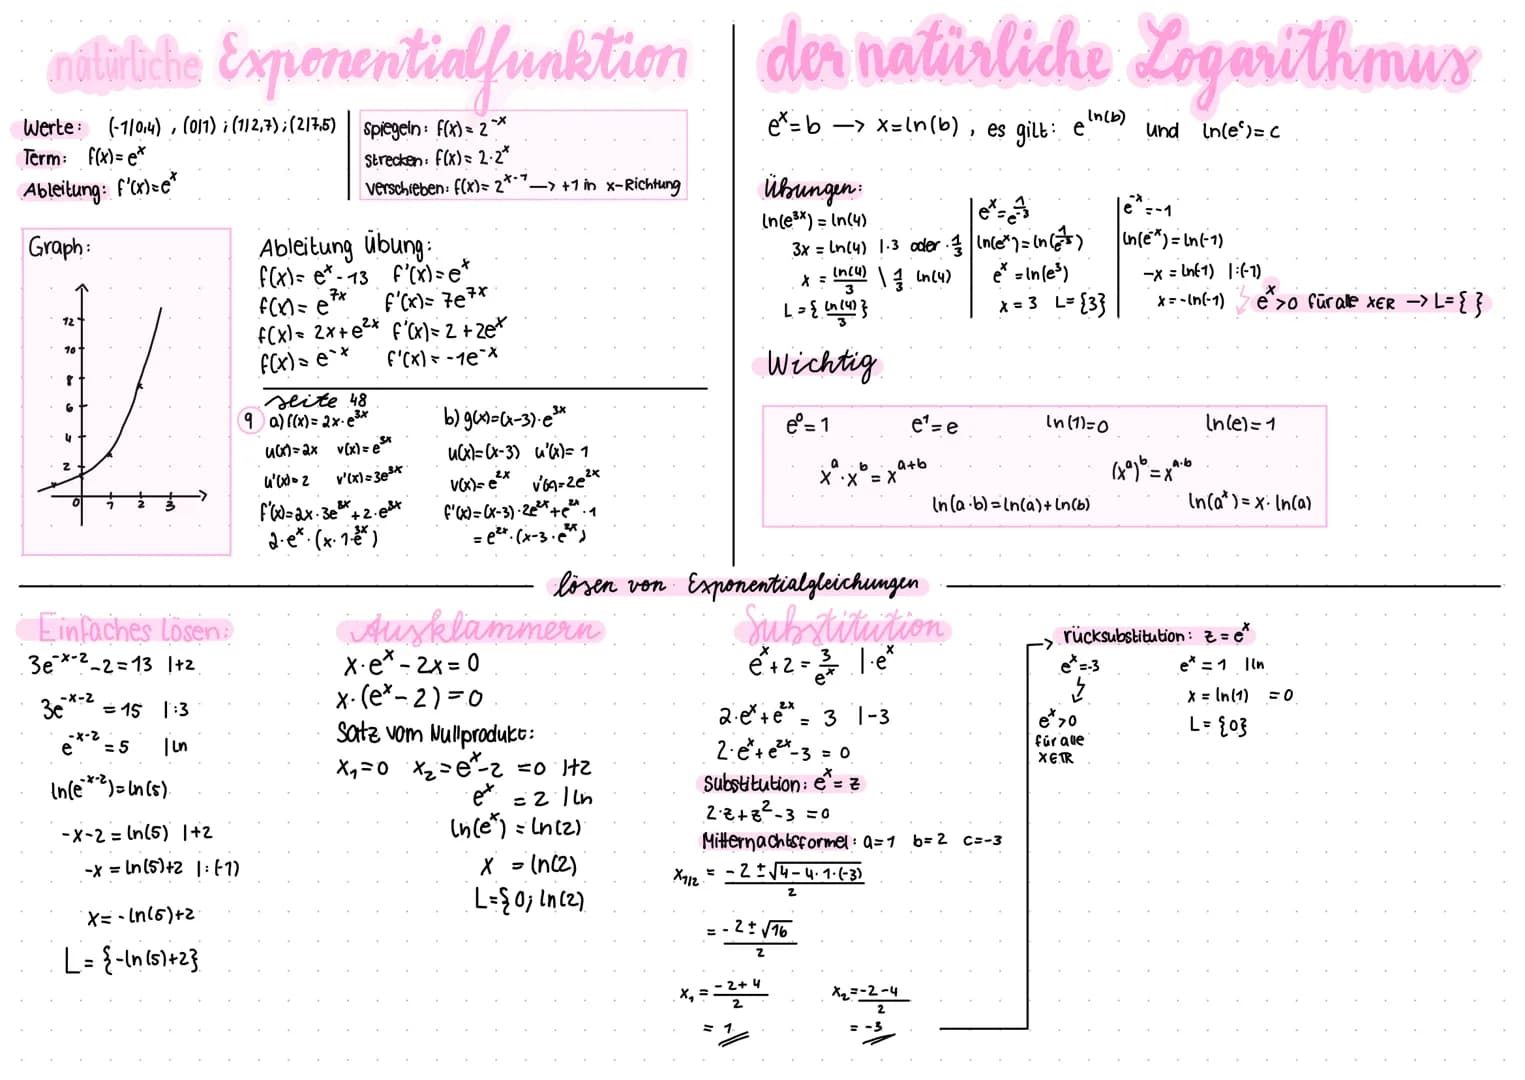 natürliche Exponentialfunktion
Werte: (-1|0,4) , (0|1) ; (1|2,7) ; (2|7,5)
Term: f(x) = e^x
Ableitung: f'(x) = e^x
spiegeln: f(x) = 2^-x
strecken: f(x) = 2·2^x
verschieben: f(x) = 2^x-1 —> +1 in x-Richtung
Graph:
12
10
8
6
4
2
0 1 2 3
Ableitung Übung:
f(x) = e^x - 13 f'(x) = e^x
f(x) = e^7x f'(x) = 7e^7x
f(x) = 2x + e^2x f'(x) = 2 + 2e^x
f(x) = e^-x f'(x) = -1e^-x
seite 48
9 a) f(x) = 2x·e^3x
u(x) = 2x v(x) = e^3x
u'(x) = 2 v'(x) = 3e^3x
f'(x) = 2x·3e^3x + 2·e^3x
2·e^x·(x·1·e^3x)
b) g(x) = (x-3)·e^3x
u(x) = (x-3) u'(x) = 1
v(x) = e^2x v'(x) = 2e^2x
f'(x) = (x-3)·2e^2x + e^2x·1
= e^2x·(x-3·e^2x)
der natürliche Logarithmus
e^x = b —> x = ln(b) , es gilt: e^ln(b) und ln(e^c) = c
Übungen:
ln(e^3x) = ln(4)
3x = ln(4) |·3 oder ·1/3
x = ln(4)/3 \ 1/3 ln(4)
L = { ln(4)/3 }
e^x = 1/e^-3
ln(e^x) = ln(1/e^-3)
e^x = ln(e^3)
x = 3 L = {3}
e^-x = -1
ln(e^-x) = ln(-1)
-x = ln(-1) |:(-1)
x = -ln(-1) e^x > 0 für alle x∈R —> L = { }
Wichtig
e^0 = 1 e^1 = e ln(1) = 0 ln(e) = 1
x^a · x^b = x^a+b (x^a)^b = x^a·b
ln(a·b) = ln(a) + ln(b) ln(a^x) = x·ln(a)
lösen von Exponentialgleichungen
Einfaches Lösen:
3e^-x-2 - 2 = 13 |+2
3e^-x-2 = 15 |:3
e^-x-2 = 5 |ln
ln(e^-x-2) = ln(5)
-x-2 = ln(5) |+2
-x = ln(5)+2 |:(-1)
x = -ln(5)+2
L = {-ln(5)+2}
Ausklammern
x·e^x - 2x = 0
x·(e^x - 2) = 0
Satz vom Nullprodukt:
x₁ = 0 x₂ = e^x - 2 = 0 |+2
e^x = 2 |ln
ln(e^x) = ln(2)
x = ln(2)
L = {0; ln(2)
Substitution
e^x + 2 = 3/e^x |·e^x
2·e^x + e^2x = 3 |-3
2·e^x + e^2x - 3 = 0
Substitution: e^x = z
2·z + z² - 3 = 0
Mitternachtsformel: a=1 b=2 c=-3
x₁/₂ = -2 ± √4-4·1·(-3) / 2
= -2 ± √16 / 2
x₁ = -2+4 / 2 x₂ = -2-4 / 2
= 1 = -3
rücksubstitution: z = e^x
e^x = -3 e^x = 1 |ln
x = ln(1) = 0
e^x > 0 L = {0}
für alle
x∈R